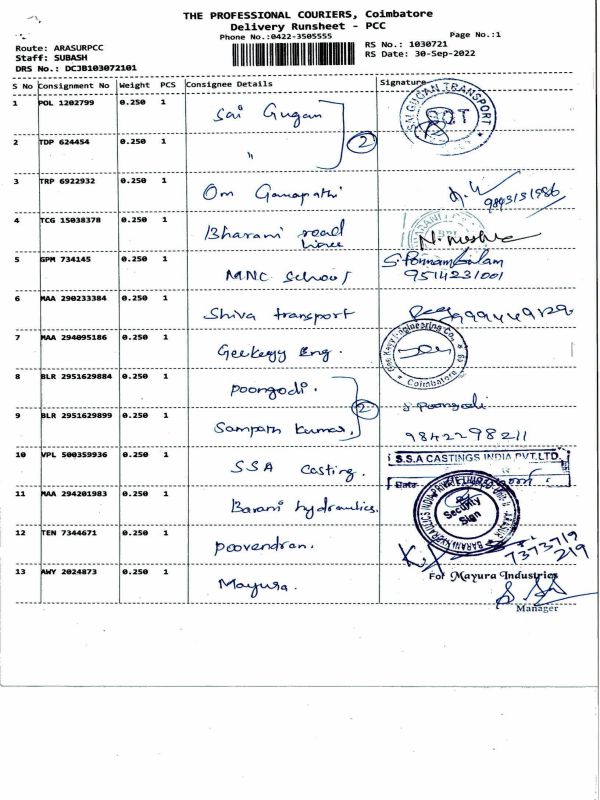 THE PROFESSIONAL COURIERS, Coimbatore
Delivery Runsheet - PCC
Phone No.:0422-3505555
Page No.:1
Route: ARASURPCC
RS No.: 1030721
Staff: SUBASH
RS Date: 30-Sep-2022
DRS No.: DCJB103072101
S No Consignment No Weight PCS Consignee Details Signature
1 POL 1202799 0.250 1 Sai Gugan
SAI GUGAN TRANSPORT
SGT
2 TDP 624454 0.250 1 "
2
3 TRP 6922932 0.250 1 Om Ganapathi
9843151986
4 TCG 15038378 0.250 1 Bharani road
5 GPM 734145 0.250 1 MNC School
S. Ponnambalam
9514231001
6 MAA 290233384 0.250 1 Shiva transport
7 MAA 294095186 0.250 1 Geekeyy Eng.
Engineering Co.
Coimbatore
8 BLR 2951629884 0.250 1 Poongodi.
S Poongodi
9 BLR 2951629899 0.250 1 Sampath Kumar.
2
9842298211
10 VPL 500359936 0.250 1 SSA Casting.
S.S.A CASTINGS INDIA PVT.LTD.
Date
11 MAA 294201983 0.250 1 Barani hydraulics.
Security
Sign
12 TEN 7344671 0.250 1 Poovendran.
7373719
219
13 AWY 2024873 0.250 1 Mayura.
For Mayura Industries
Manager